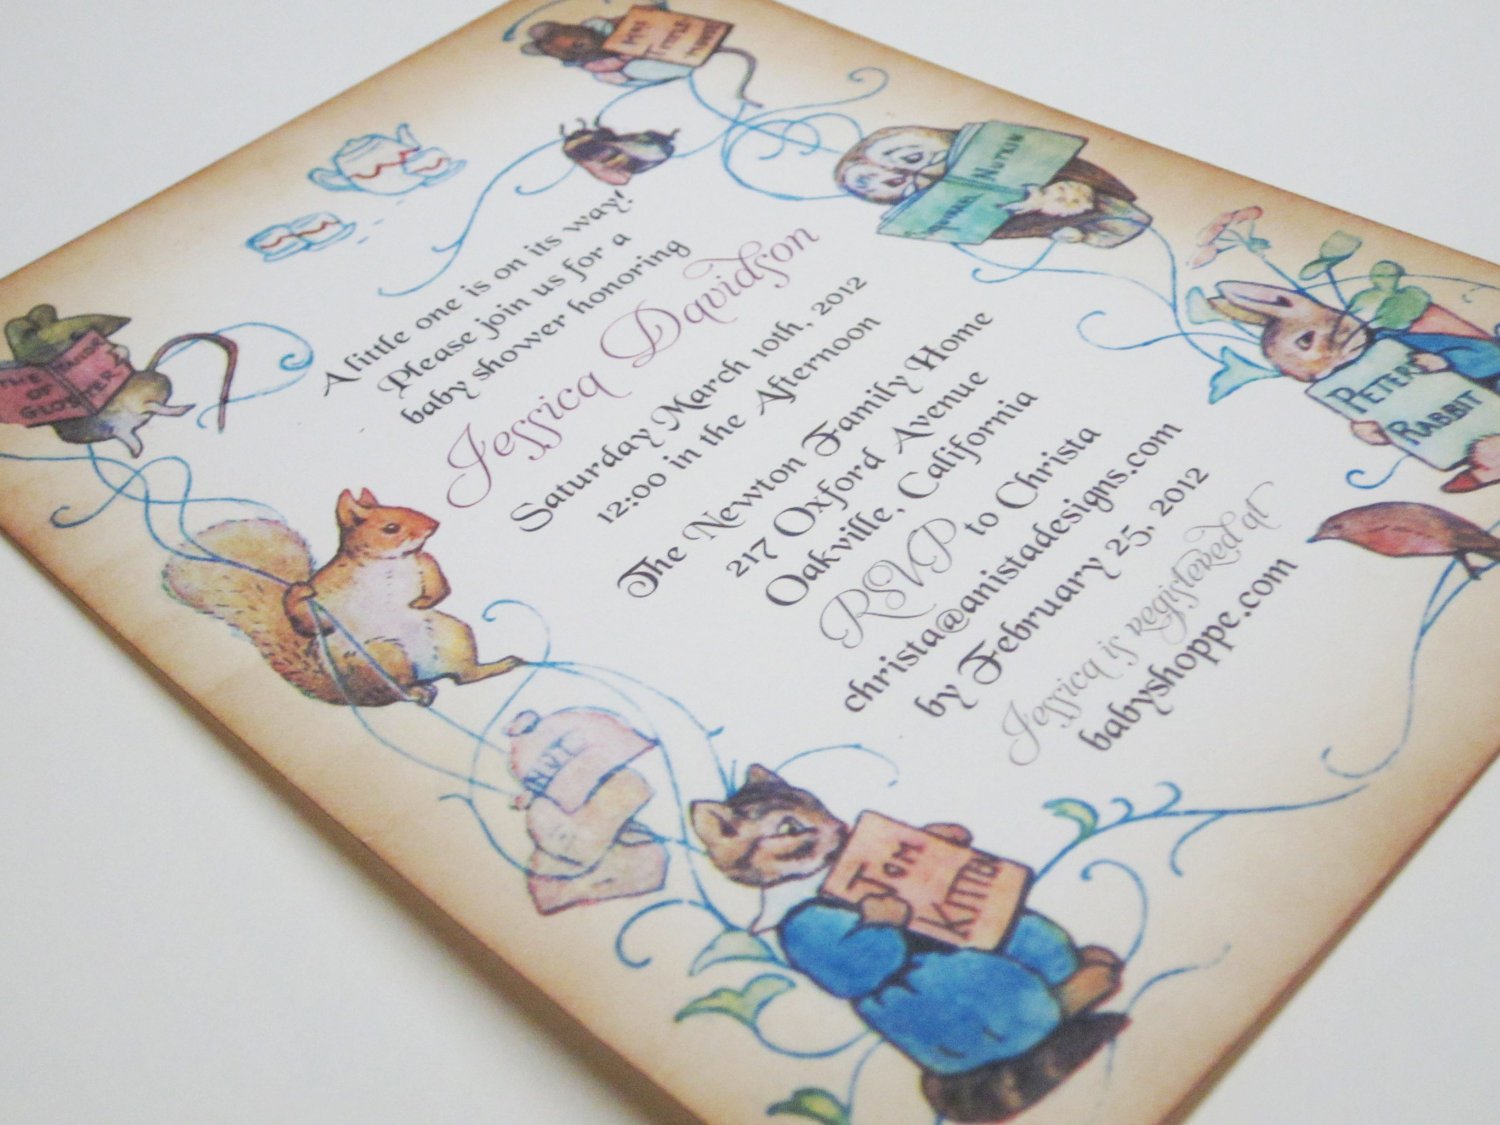 A little one is on its way!
Please join us for a
baby shower honoring
Jessica Davidson
Saturday March 10th, 2012
12:00 in the Afternoon
The Newton Family Home
217 Oxford Avenue
Oakville, California
RSVP to Christa
christa@anistadesigns.com
by February 25, 2012
Jessica is registered at
babyshoppe.com
MRS
TITTLE
MOUSE
SQUIRREL NUTKIN
PETER
RABBIT
THE TAILOR
OF
GLOUCESTER
NUT
TOM
KITTEN